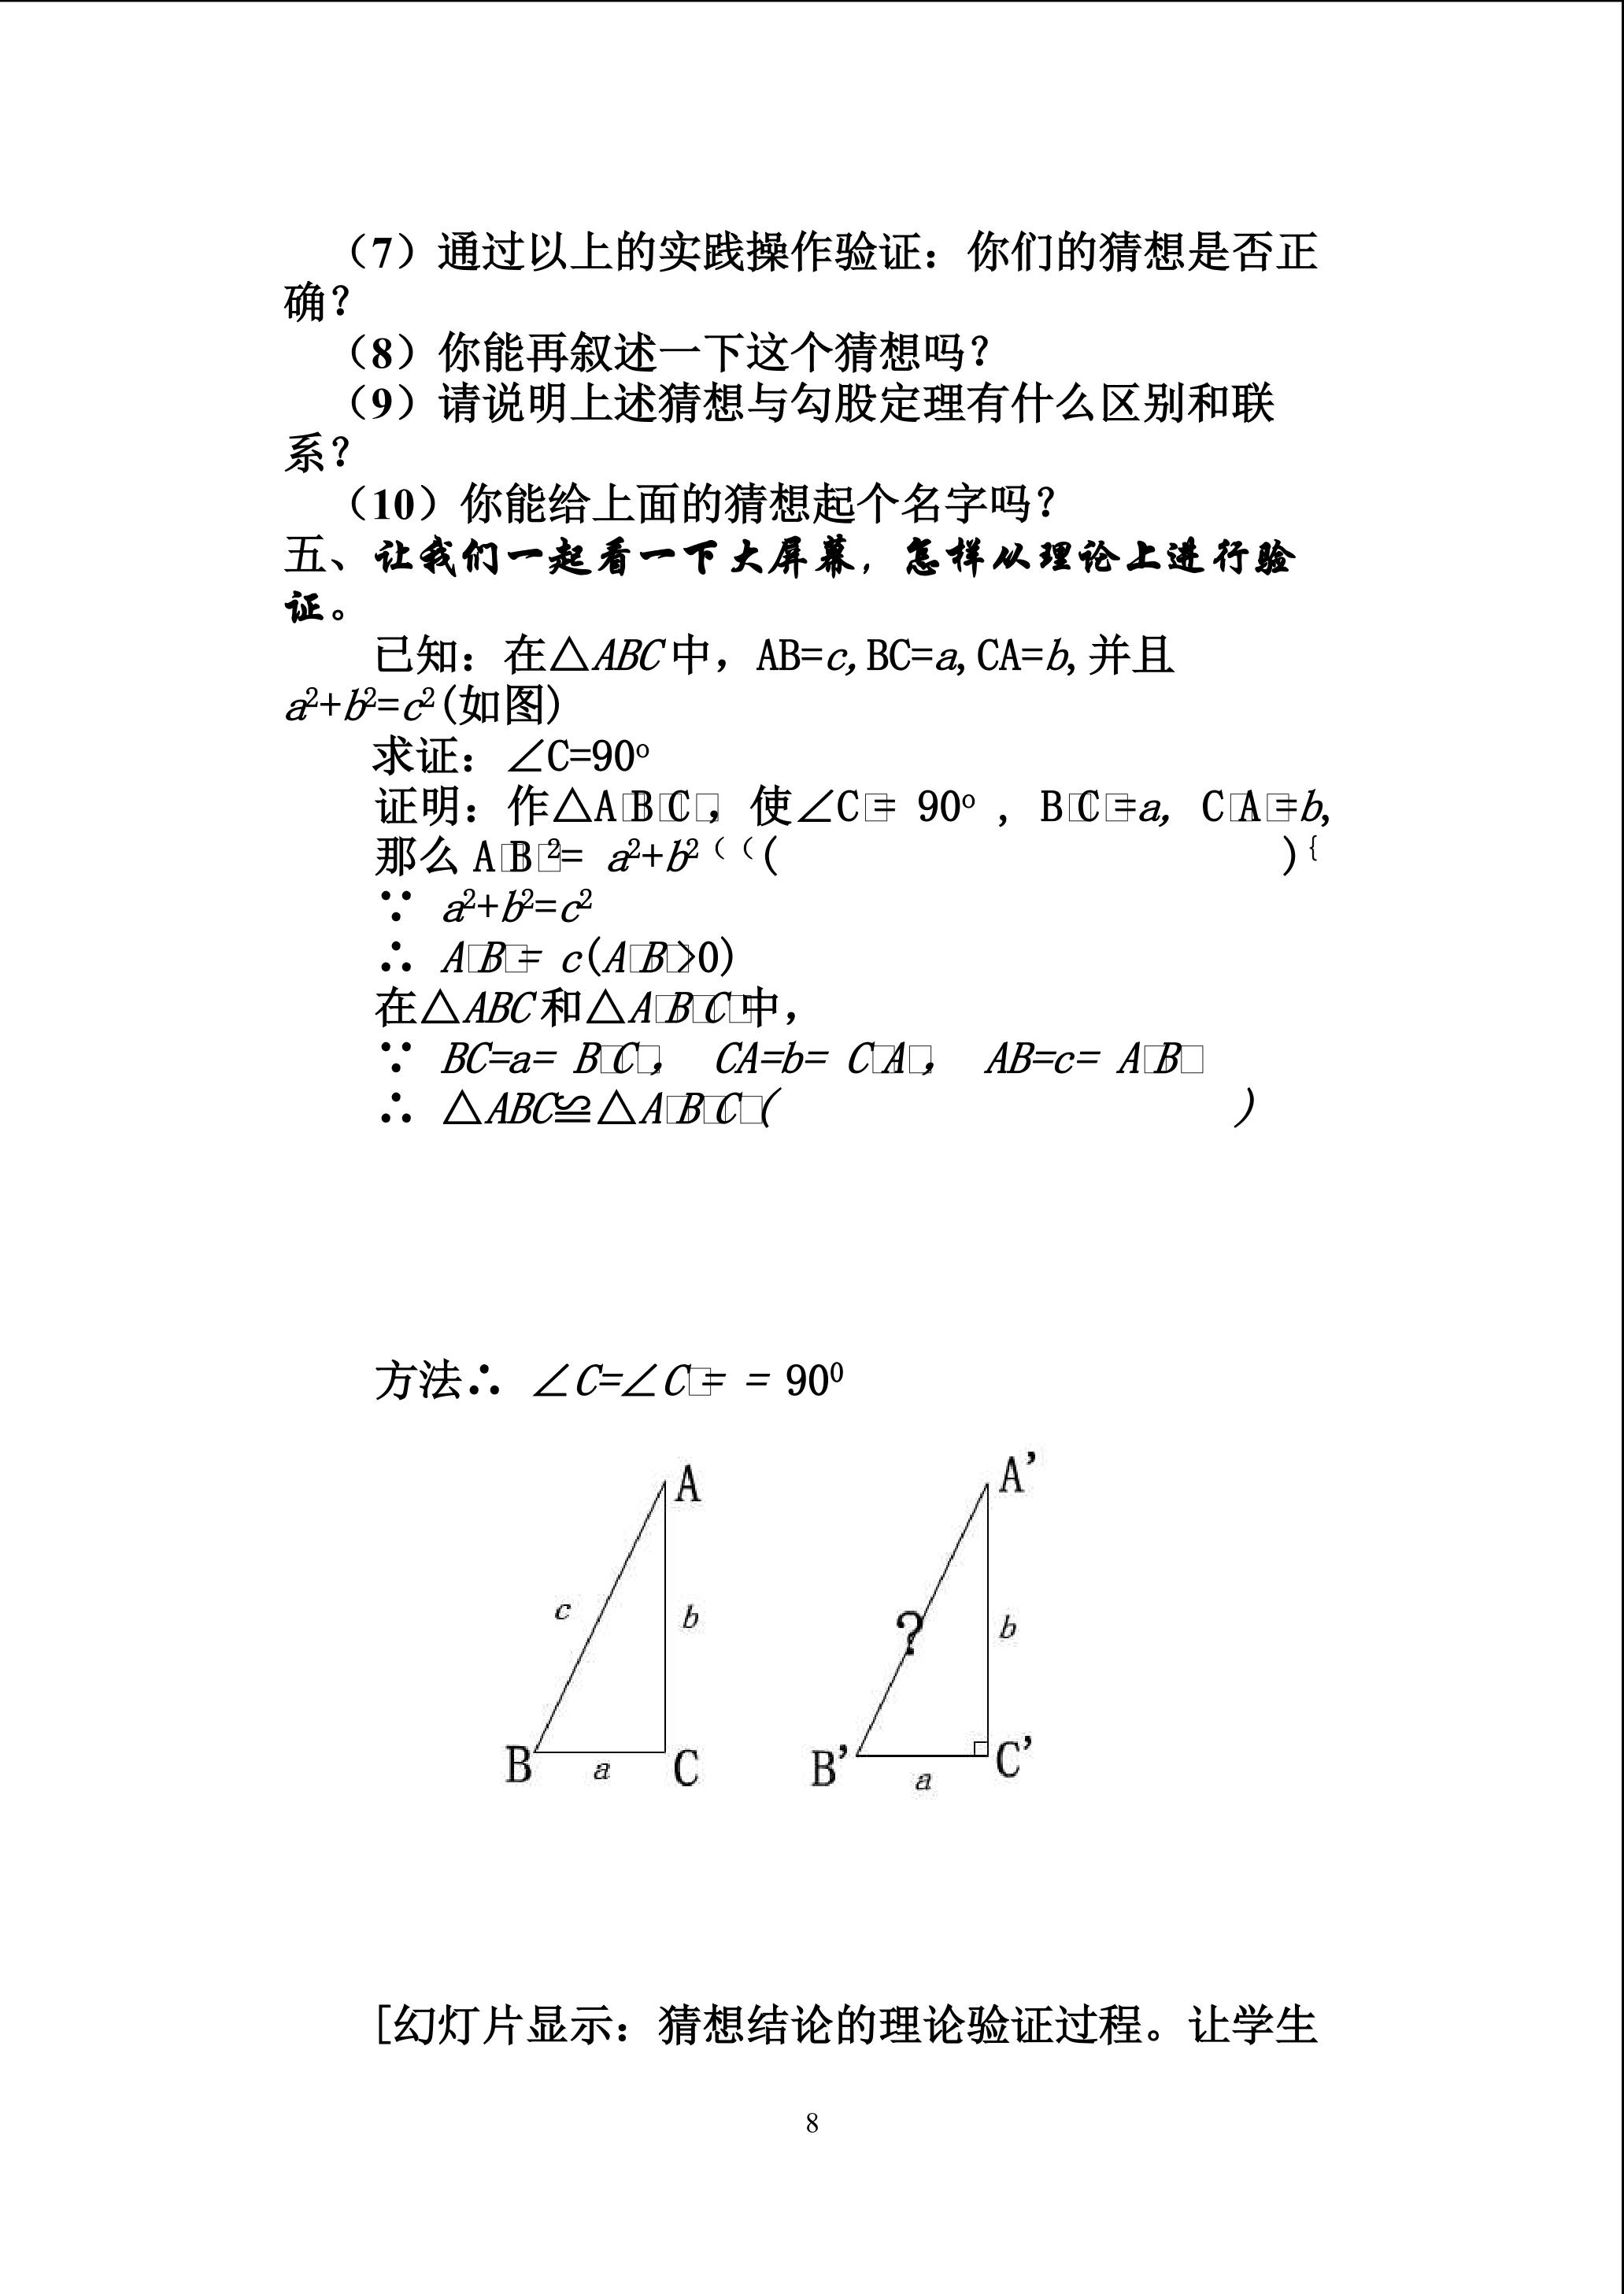 （7）通过以上的实践操作验证：你们的猜想是否正
确？
（8）你能再叙述一下这个猜想吗？
（9）请说明上述猜想与勾股定理有什么区别和联
系？
（10）你能给上面的猜想起个名字吗？
五、让我们一起看一下大屏幕，怎样从理论上进行验
证。
已知：在△ABC中，AB=c,BC=a,CA=b,并且
a²+b²=c²(如图)
求证：∠C=90º
证明：作△A□B□C□，使∠C□= 90º ，B□C□=a, C□A□=b,
那么 A□B□²= a²+b²（（( ){
∵ a²+b²=c²
∴ A□B□= c(A□B□>0)
在△ABC和△A□B□C□中,
∵ BC=a= B□C□, CA=b= C□A□, AB=c= A□B□
∴ △ABC≌△A□B□C□( )
方法∴ ∠C=∠C□= = 90⁰
A
c
b
B
a
C
A’
?
b
B’
a
C’
[幻灯片显示：猜想结论的理论验证过程。让学生
8